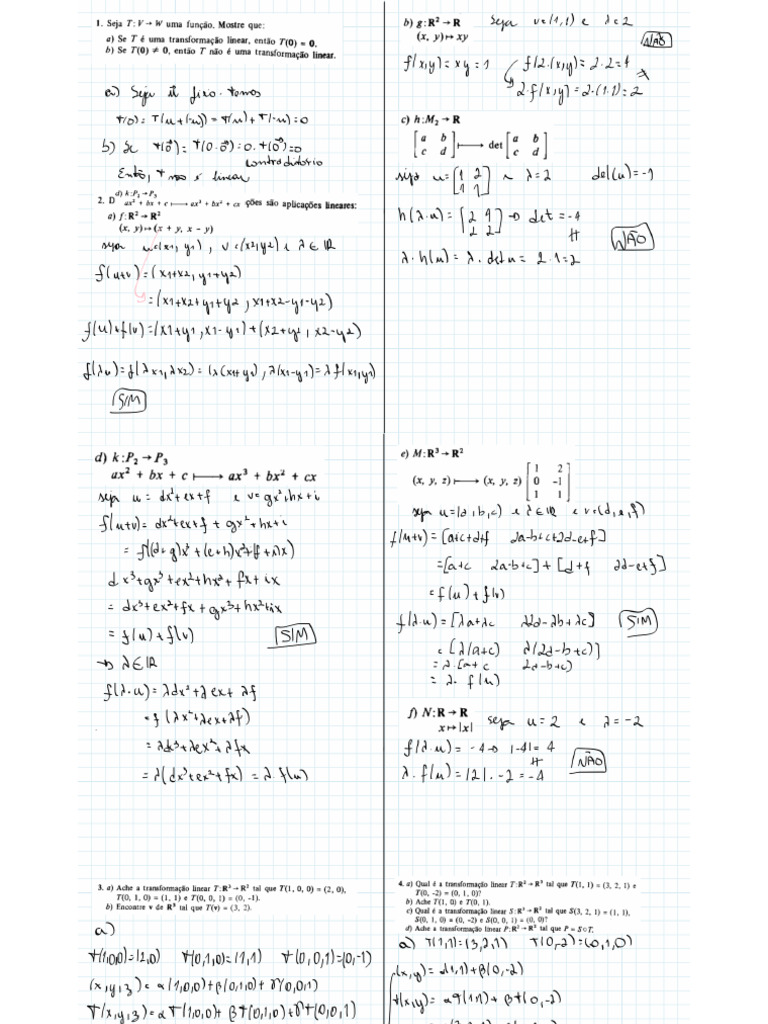 1. Seja T : V → W uma função. Mostre que:
a) Se T é uma transformação linear, então T(0) = 0.
b) Se T(0) ≠ 0, então T não é uma transformação linear.
a) Seja u fixo. temos
T(0) = T(u+(-u)) = T(u) + T(-u) = 0
b) Se T(0) = T(0·0) = 0·T(0) = 0
contraditório
Então, T não é linear
d) k : P₂ → P₃
2. D ax² + bx + c ⟼ ax³ + bx² + cx ções são aplicações lineares:
a) f : R² → R²
(x, y) ↦ (x + y, x − y)
seja u=(x1, y1), v=(x2, y2) e λ ∈ IR
f(u+v) = (x1+x2, y1+y2)
= (x1+x2+y1+y2, x1+x2-y1-y2)
f(u)+f(v) = (x1+y1, x1-y1)+(x2+y2, x2-y2)
f(λu) = f(λx1, λx2) = (λ(x1+y1), λ(x1-y1) = λf(x1,y1)
SIM
b) g : R² → R seja v=(1,1) e λ=2
(x, y) ↦ xy
NÃO
f(x,y) = xy = 1 f(2·(x,y) = 2·2 = 4
2·f(x,y) = 2·(1·1) = 2
c) h : M₂ → R
[a b] ⟼ det [a b]
[c d] [c d]
seja u = [1 2] e λ = 2 det(u) = -1
[1 1]
h(λ·u) = [2 4] → det = -4
[2 2]
NÃO
λ·h(u) = λ·det u = 2·1 = 2
d) k : P₂ → P₃
ax² + bx + c ⟼ ax³ + bx² + cx
seja u = dx²+ex+f e v = gx²+hx+i
f(u+v) = dx²+ex+f + gx²+hx+i
= f((d+g)x² + (e+h)x²+(f+i)x)
dx³+gx³+ex²+hx²+fx+ix
= dx³+ex²+fx+gx³+hx²+ix
= f(u)+f(v) SIM
→ λ ∈ IR
f(λ·u) = λdx²+λex+λf
= f(λx²+λex+λf)
= λd³+λex²+λfx
= λ(dx³+ex²+fx) = λ·f(u)
e) M : R³ → R²
(x, y, z) ⟼ (x, y, z) [1 2]
[0 −1]
[1 1]
seja u=(a,b,c) e λ ∈ IR e v=(d,e,f)
f(u+v) = [a+c+d+f 2a-b+c+2d-e+f]
= [a+c 2a-b+c] + [d+f 2d-e+f]
= f(u)+f(v)
f(λ·u) = [λa+λc λ2a-λb+λc] SIM
= [λ(a+c) λ(2a-b+c)]
= λ·[a+c 2a-b+c)
= λ· f(u)
f) N : R → R seja u = 2 e λ = -2
x ↦ |x|
f(λ·u) = -4 → |-4| = 4
NÃO
λ·f(u) = |2|·-2 = -4
3. a) Ache a transformação linear T : R³ → R² tal que T(1, 0, 0) = (2, 0),
T(0, 1, 0) = (1, 1) e T(0, 0, 1) = (0, -1).
b) Encontre v de R³ tal que T(v) = (3, 2).
a)
T(1,0,0)=(2,0) T(0,1,0)=(1,1) T(0,0,1)=(0,-1)
(x,y,z) = α(1,0,0)+β(0,1,0)+γ(0,0,1)
T(x,y,z) = αT(1,0,0)+βT(0,1,0)+γT(0,0,1)
4. a) Qual é a transformação linear T : R² → R³ tal que T(1, 1) = (3, 2, 1) e
T(0, -2) = (0, 1, 0)?
b) Ache T(1, 0) e T(0, 1).
c) Qual é a transformação linear S : R³ → R² tal que S(3, 2, 1) = (1, 1),
S(0, 1, 0) = (0, -2) e S(0, 0, 1) = (0, 0)?
d) Ache a transformação linear P : R² → R² tal que P = S∘T.
a) T(1,1)=(3,2,1) T(0,-2)=(0,1,0)
(x,y) = α(1,1)+β(0,-2)
T(x,y) = αT(1,1)+βT(0,-2)